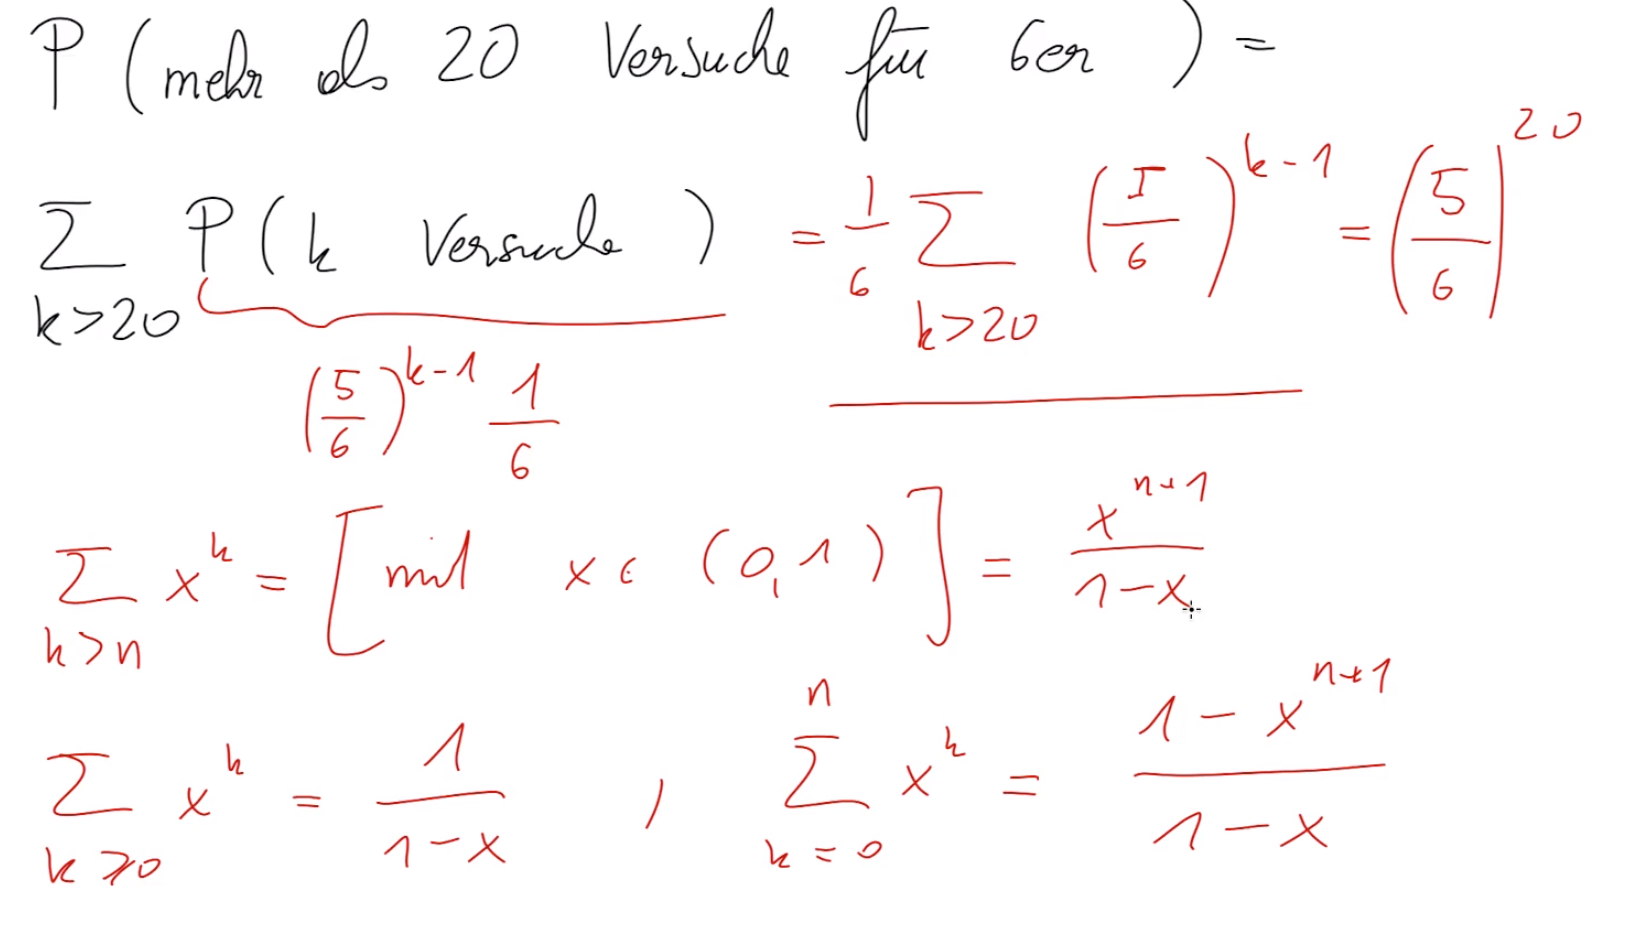 P ( mehr als 20 Versuche für 6er ) =
∑_{k>20} P ( k Versuche ) = 1/6 ∑_{k>20} (5/6)^{k-1} = (5/6)^{20}
(5/6)^{k-1} 1/6
∑_{k>n} x^k = [ mit x ∈ (0,1) ] = x^{n+1}/(1-x)
∑_{k≥0} x^k = 1/(1-x) , ∑_{k=0}^{n} x^k = (1-x^{n+1})/(1-x)